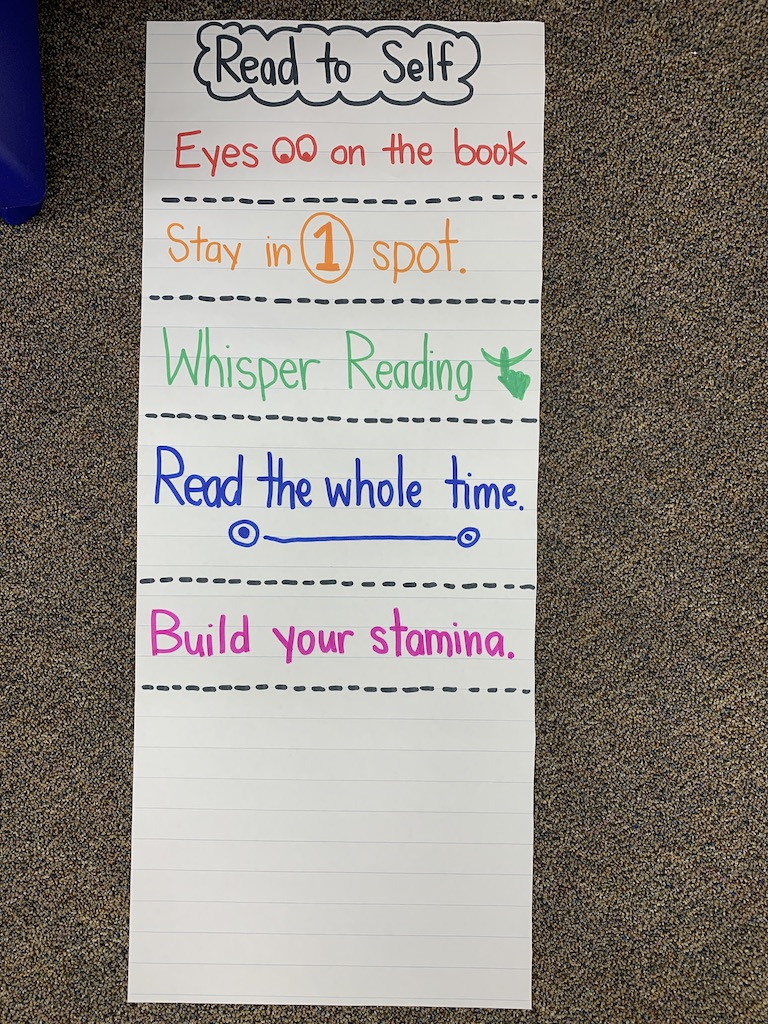 Read to Self
Eyes on the book
Stay in 1 spot.
Whisper Reading
Read the whole time.
Build your stamina.